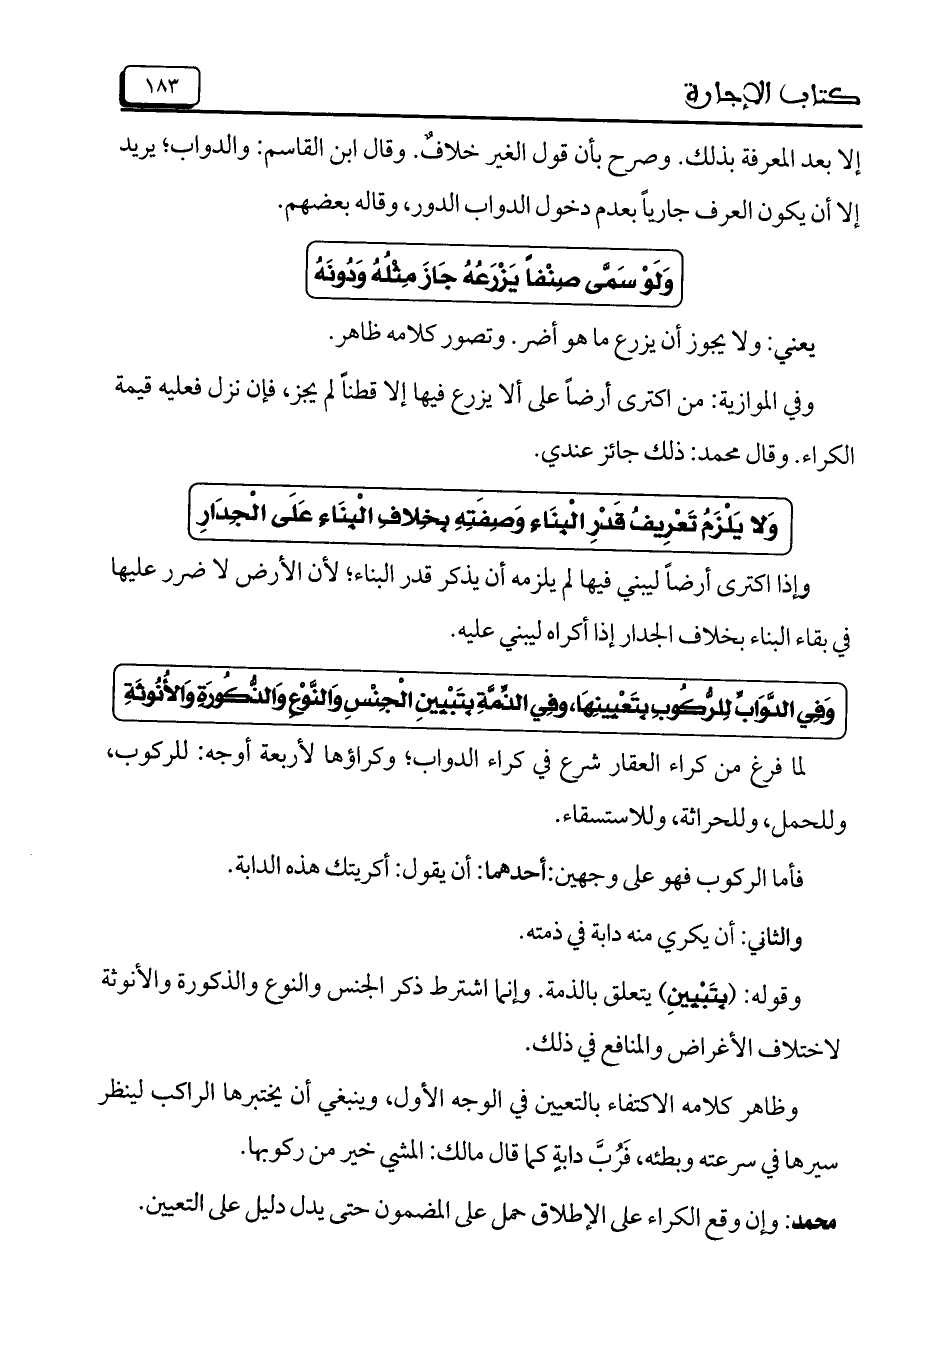 كتاب الإجارة
١٨٣
إلا بعد المعرفة بذلك. وصرح بأن قول الغير خلافٌ. وقال ابن القاسم: والدواب؛ يريد
إلا أن يكون العرف جارياً بعدم دخول الدواب الدور، وقاله بعضهم.
وَلَوْ سَمَّى صِنْفاً يَزْرَعُهُ جَازَ مِثْلُهُ وَدُونَهُ
يعني: ولا يجوز أن يزرع ما هو أضر. وتصور كلامه ظاهر.
وفي الموازية: من اكترى أرضاً على ألا يزرع فيها إلا قطناً لم يجز، فإن نزل فعليه قيمة
الكراء. وقال محمد: ذلك جائز عندي.
وَلا يَلْزَمُ تَعْرِيفُ قَدْرِ الْبِنَاءِ وَصِفَتِهِ بِخِلافِ الْبِنَاءِ عَلَى الْجِدَارِ
وإذا اكترى أرضاً ليبني فيها لم يلزمه أن يذكر قدر البناء؛ لأن الأرض لا ضرر عليها
في بقاء البناء بخلاف الجدار إذا أكراه ليبني عليه.
وَفِي الدَّوَابِّ لِلرُّكُوبِ بِتَعْيِينِهَا، وَفِي الذِّمَّةِ بِتَبْيِينِ الْجِنْسِ وَالنَّوْعِ وَالذُّكُورَةِ وَالأُنُوثَةِ
لما فرغ من كراء العقار شرع في كراء الدواب؛ وكراؤها لأربعة أوجه: للركوب،
وللحمل، وللحراثة، وللاستسقاء.
فأما الركوب فهو على وجهين:أحدهما: أن يقول: أكريتك هذه الدابة.
والثاني: أن يكري منه دابة في ذمته.
وقوله: (بِتَبْيِينِ) يتعلق بالذمة. وإنما اشترط ذكر الجنس والنوع والذكورة والأنوثة
لاختلاف الأغراض والمنافع في ذلك.
وظاهر كلامه الاكتفاء بالتعيين في الوجه الأول، وينبغي أن يختبرها الراكب لينظر
سيرها في سرعته وبطئه، فَرُبَّ دابةٍ كما قال مالك: المشي خير من ركوبها.
محمد: وإن وقع الكراء على الإطلاق حمل على المضمون حتى يدل دليل على التعيين.